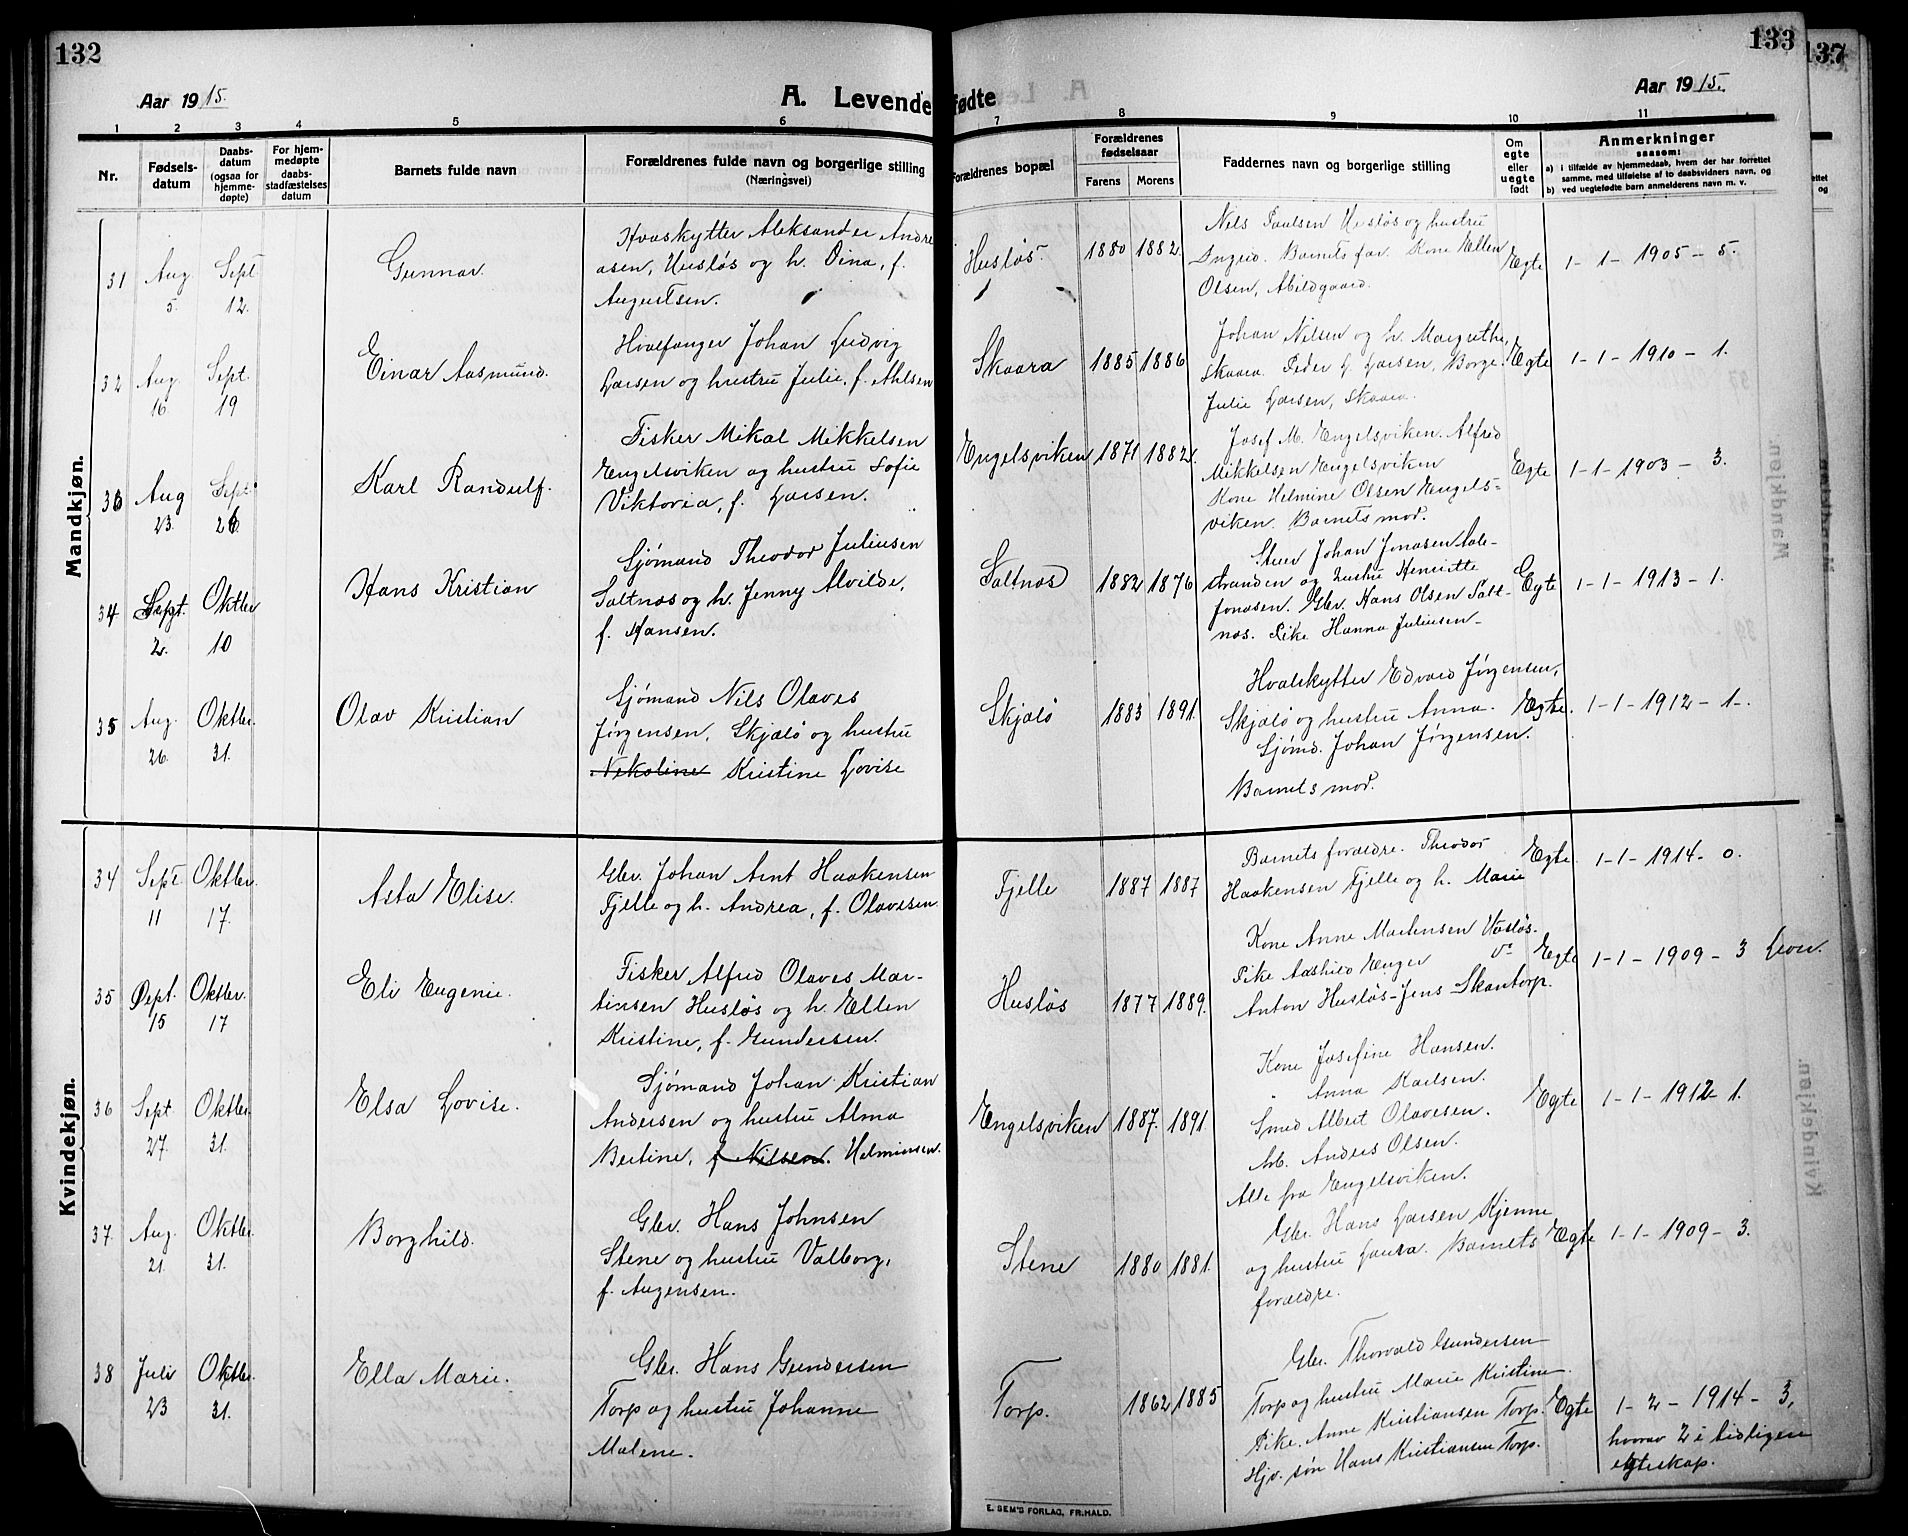 132
Aar 1915.
A. Levende
1 2 3 4 5 6
Nr.
Fødsels-
datum
Daabs-
datum
(ogsaa for
hjemme-
døpte)
For hjem-
medøpte
daabs-
stadfæstelses
datum
Barnets fulde navn
Forældrenes fulde navn og borgerlige stilling
(Næringsvei)
Mandkjøn.
31 Aug 5. Sept 12. Gunnar.
Hvaskytter Aleksander Andre
asen, Husløs og h. Oina, f.
Augustsen.
32 Aug. 16. Sept. 19 Einar Aasmund.
Hvalfanger Johan Ludvig
Larsen og hustru Julie, f. Ahlsen
33 Aug 23. Sept. 26 Karl Randulf.
Fisker Mikal Mikkelsen
Engelsviken og hustru Sofie
Viktoria, f. Larsen.
34 Sept. 2. Oktbr 10 Hans Kristian
Sjømand Theodor Juliusen
Saltnas og h. Jenny Alvilde,
f. Hansen.
35 Aug. 26. Oktbr. 31. Olav Kristian
Sjømand Nils Olaves
Jørgensen, Skjælø og hustru
Nikoline Kristine Lovise
Kvindekjøn.
34 Sept 11 Oktbr. 17. Asta Elise.
Gbr. Johan Arnt Haakensen
Fjelle og h. Andrea, f. Olavesen
35 Sept. 15 Oktbr. 17 Eli Eugenie.
Fisker Alfred Olaves Mar-
tinsen Husløs og h. Ellen
Kristine, f. Gundersen.
36 Sept. 27. Oktbr. 31. Elsa Lovise.
Sjømand Johan Kristian
Andersen og hustru Alma
Bertine, f. Nilsen. Helminsen.
37. Aug. 21. Oktbr. 31. Borghild.
Gbr. Hans Johnsen
Stene og hustru Valborg,
f. Augensen.
38 Juli 23 Oktbr. 31. Ella Marie.
Gbr. Hans Gundersen
Torp og hustru Johanne
Malene.
133
137
Aar 1915.
fødte
7 8 9 10 11
Forældrenes bopæl
Forældrenes
fødselsaar
Farens Morens
Faddernes navn og borgerlige stilling
Om
egte
eller
uegte
født
Anmerkninger
saasom:
a) i tilfælde av hjemmedaab, hvem der har forrettet
samme, med tilføielse af to daabsvidners navn, og
b) ved uegtefødte barn anmelderens navn m. v.
Husløs. 1880 1882.
Nils Paulsen Husløs og hustru
Ingrid. Barnets far. Kone Ellen
Olsen, Abildgaard.
Egte 1-1-1905-5.
Skaara 1885 1886
Johan Nilsen og h. Margrethe,
Skaara. Peder L. Larsen, Borge.
Julie Larsen, Skaara.
Egte 1-1-1910-1.
Engelsviken 1871 1882.
Josef M. Engelsviken. Alfred
Mikkelsen Engelsviken
Kone Helmine Olsen Engels-
viken. Barnets mor.
Egte 1-1-1903-3.
Saltnas 1882 1876
Stuer Johan Jonasen Aale-
stranden og hustru Henriette
Jonasen. Gbr. Hans Olsen Salt-
nas. Pike Hanna Juliusen
Egte 1-1-1913-1.
Skjælø 1883 1891.
Hvalskytter Edvard Jørgensen,
Skjælø og hustru Anna.
Sjømd. Johan Jørgensen.
Barnets mor.
Egte. 1-1-1912-1-.
Fjelle 1887 1887
Barnets forældre. Theodor
Haakensen Fjelle og h. Marie
Egte. 1-1-1914-0.
Husløs 1877 1889.
Kone Anne Martinsen Husløs.
Pike Aashild Enger
Anton Husløs - Jens Skantorp.
Egte 1-1-1909-3
Engelsviken 1887. 1891.
Kone Josefine Hansen.
" Anna Karlsen.
Smed Albert Olavesen.
Arb. Anders Olsen.
Alle fra Engelsviken.
Egte 1-1-1912-1.
Stene 1880 1881.
Gbr. Hans Larsen Kjenne
og hustru Laura. Barnets
forældre.
Egte 1-1-1909-3.
Torp. 1862 1885
Gbr. Thorvald Gundersen
Torp og hustru Marie Kristine.
Pike. Anne Kristiansen Torp.
Hjv. søn Hans Kristiansen Torp.
Egte 1-2-1914-3,
hvorav 2 i tidligere
egteskap.
E. SEM'S FORLAG, FR.HALD.